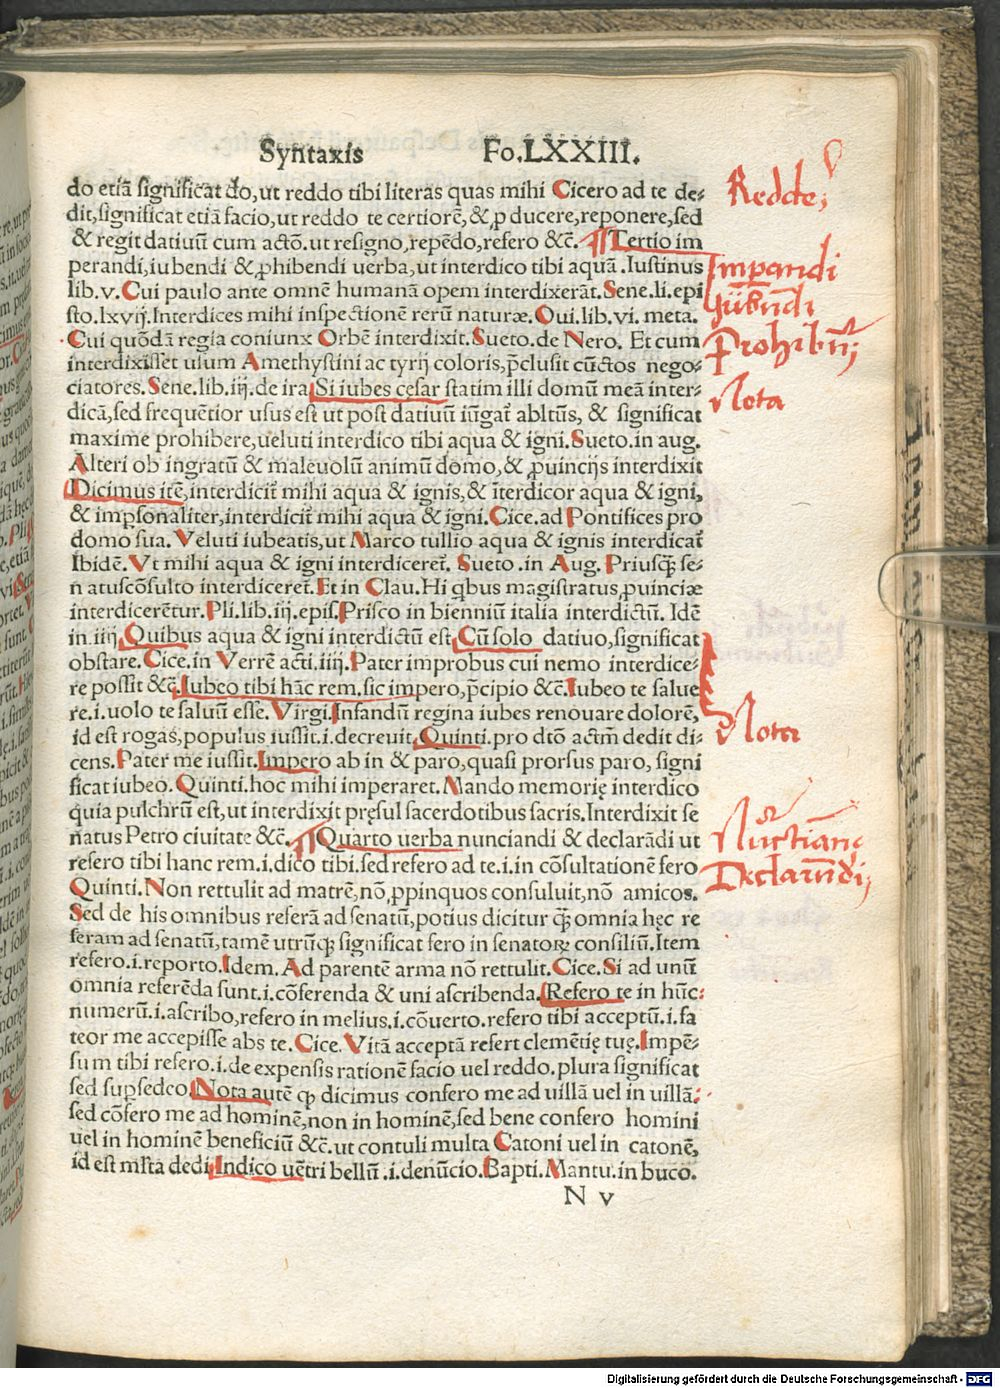 Syntaxis Fo.LXXIII.
do etiā significat do, ut reddo tibi literas quas mihi Cicero ad te de-
dit, significat etiā facio, ut reddo te certiorē, & ꝓducere, reponere, sed
& regit datiuū cum actō. ut resigno, repēdo, refero &c̄. ¶ Tertio im
perandi, iubendi & ꝓhibendi uerba, ut interdico tibi aquā. Iustinus
lib.v. Cui paulo ante omnē humanā opem interdixerāt. Sene.li.epi
sto.lxvij. Interdices mihi inspectionē rerū naturæ. Oui.lib.vi.meta.
Cui quōdā regia coniunx Orbē interdixit. Sueto.de Nero. Et cum
interdixisset usum Amethystini ac tyrij coloris, p̄clusit cūctos nego-
ciatores. Sene.lib.iij.de ira Si iubes cesar statim illi domū meā inter-
dicā, sed frequētior usus est ut post datiuū iūgat̄ abltūs, & significat
maxime prohibere, ueluti interdico tibi aqua & igni. Sueto.in aug.
Alteri ob ingratū & maleuolū animū domo, & ꝓuincijs interdixit
Dicimus itē, interdicit̄ mihi aqua & ignis, & īterdicor aqua & igni,
& imp̱sonaliter, interdicit̄ mihi aqua & igni. Cice.ad Pontifices pro
domo sua. Veluti iubeatis, ut Marco tullio aqua & ignis interdicat̄
Ibidē. Vt mihi aqua & igni interdiceret̄. Sueto.in Aug. Priusꝙ̄ se-
natuscōsulto interdiceret̄. Et in Clau. Hi qbus magistratus, ꝓuinciæ
interdicerētur. Pli.lib.iij.epis. Prisco in bienniū italia interdictū. Idē
in iiij. Quibus aqua & igni interdictū est. Cū solo datiuo, significat
obstare. Cice.in Verrē acti.iiij. Pater improbus cui nemo interdice-
re possit &c̄. Iubeo tibi hāc rem. sic impero, p̄cipio &c̄. Iubeo te salue
re.i.uolo te saluū esse. Virgi. Infandū regina iubes renouare dolorē,
id est rogas, populus iussit.i.decreuit. Quinti. pro dtō actm̄ dedit di-
cens. Pater me iussit. Impero ab in & paro, quasi prorsus paro, signi
ficat iubeo. Quinti. hoc mihi imperaret. Mando memorię interdico
quia pulchrū est, ut interdixit pręsul sacerdotibus sacris. Interdixit se
natus Petro ciuitate &c̄. ¶ Quarto uerba nunciandi & declarādi ut
refero tibi hanc rem.i.dico tibi. sed refero ad te.i.in cōsultationē fero
Quinti. Non rettulit ad matrē, nō, ꝓpinquos consuluit, nō amicos.
Sed de his omnibus referā ad senatū, potius dicitur ꝙ̄ omnia hęc re
feram ad senatū, tamē utrūꝙ significat fero in senatorꝝ consiliū. Item
refero.i.reporto. Idem. Ad parentē arma nō rettulit. Cice. Si ad unū
omnia referēda sunt.i.cōferenda & uni ascribenda. Refero te in hūc
numerū.i.ascribo, refero in melius.i.cōuerto. refero tibi acceptū.i.fa
teor me accepisse abs te. Cice. Vitā acceptā refert clemētię tuę. Impē-
sum tibi refero.i.de expensis rationē facio uel reddo. plura significat
sed sup̱sedeo. Nota autē ꝙ dicimus confero me ad uillā uel in uillā.
sed cōfero me ad hominē, non in hominē, sed bene confero homini
uel in hominē beneficiū &c̄. ut contuli multa Catoni uel in catonē,
id est ml̄ta dedi. Indico uētri bellū.i.denūcio. Bapti. Mantu.in buco.
N v
Reddere
Imꝑandi
Jubēndi
Prohibēdi
Nota
Nota
Nūctiandi
Declarandi
Digitalisierung gefördert durch die Deutsche Forschungsgemeinschaft - DFG